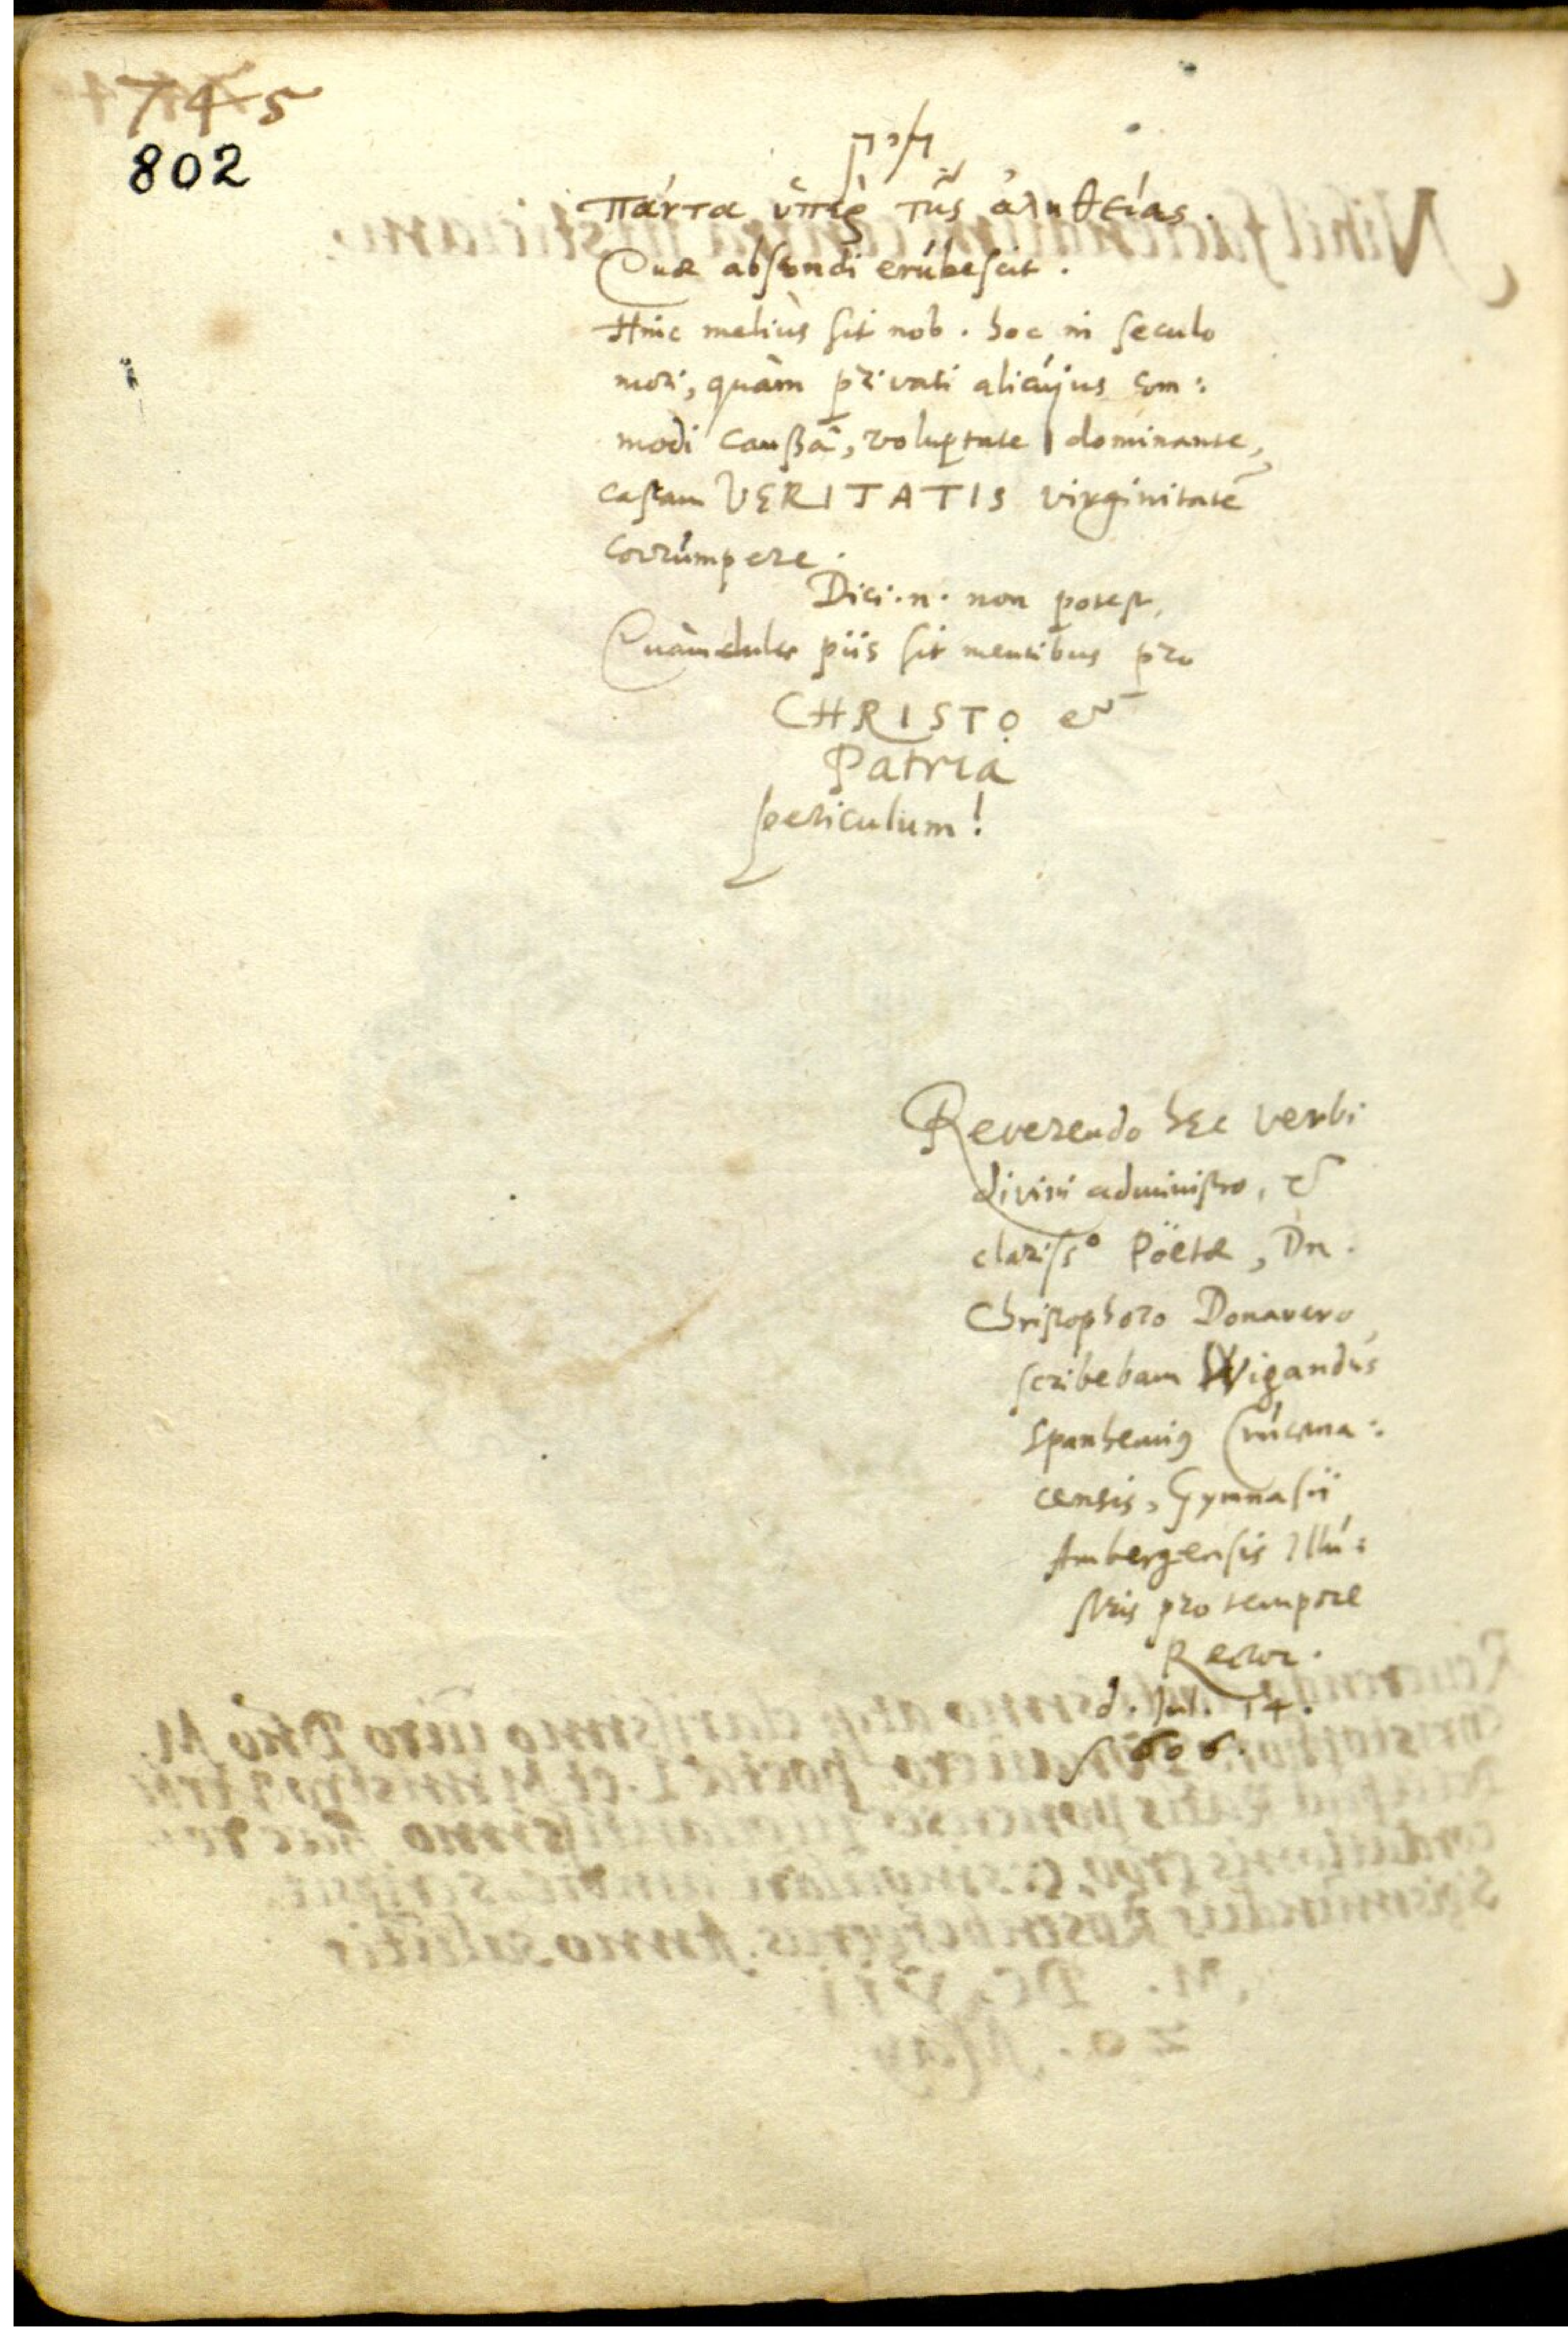 745
802
πάντα ὑπὲρ τῆς ἀληθείας.
Quæ abscondi erúbescit.
Hinc meliùs sit nob. hoc in seculo
mori, quàm privati alicújus com:
modi caußâ, voluptate dominante,
castam VERITATIS virginitatē
corrúmpere.
Dici.n. non potest,
Quàm dulce piis sit mentibus pro
CHRISTO et
Patria
periculum!
Reverendo hęc verbi
divini administro, &
clariss° Pöetæ, Dn.
Christophoro Donavero
scribebam Wigandús
Spanhemiꝰ Crúcena:
censis, Gymnasii
Ambergensis Illú:
stris pro tempore
Rector.
d. Jul. 14.
1606.